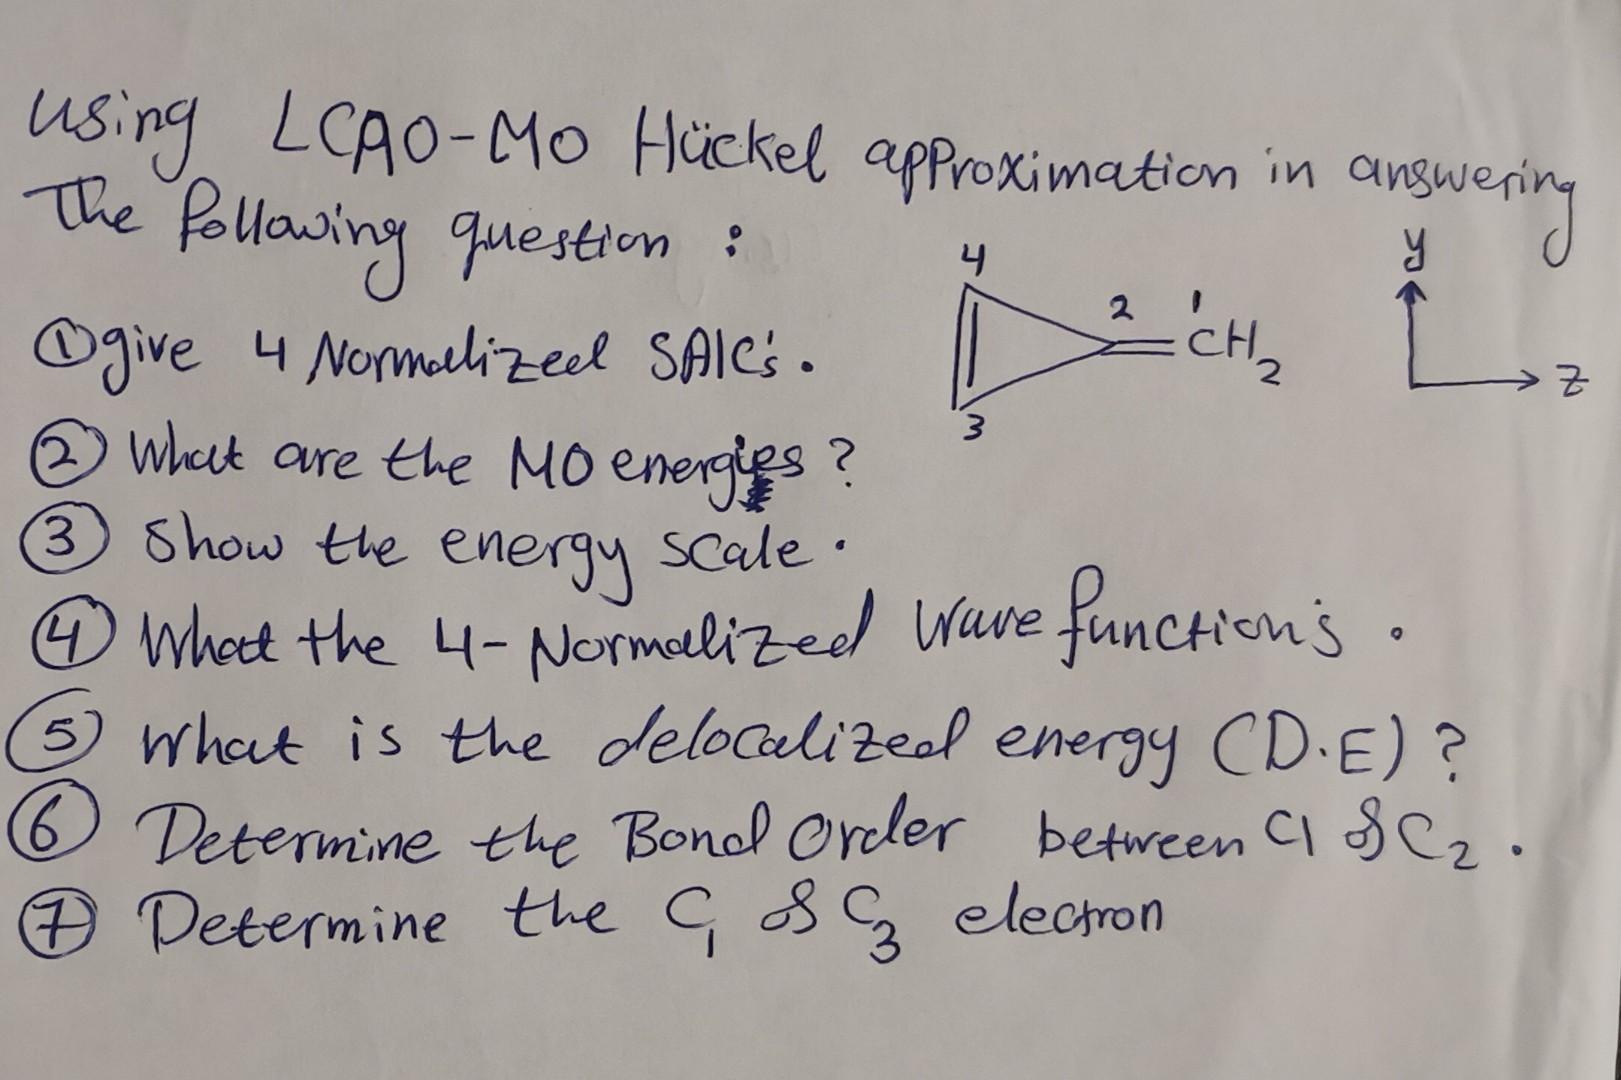 using LCAO-MO Hückel approximation in answering
The following question :
① give 4 Normalized SAlC's.
② What are the MO energies ?
③ Show the energy scale.
④ What the 4-Normalized wave function's.
⑤ What is the delocalized energy (D.E) ?
⑥ Determine the Bond Order between C1 & C2.
⑦ Determine the C1 & C3 electron
4
2
1
CH2
3
y
z